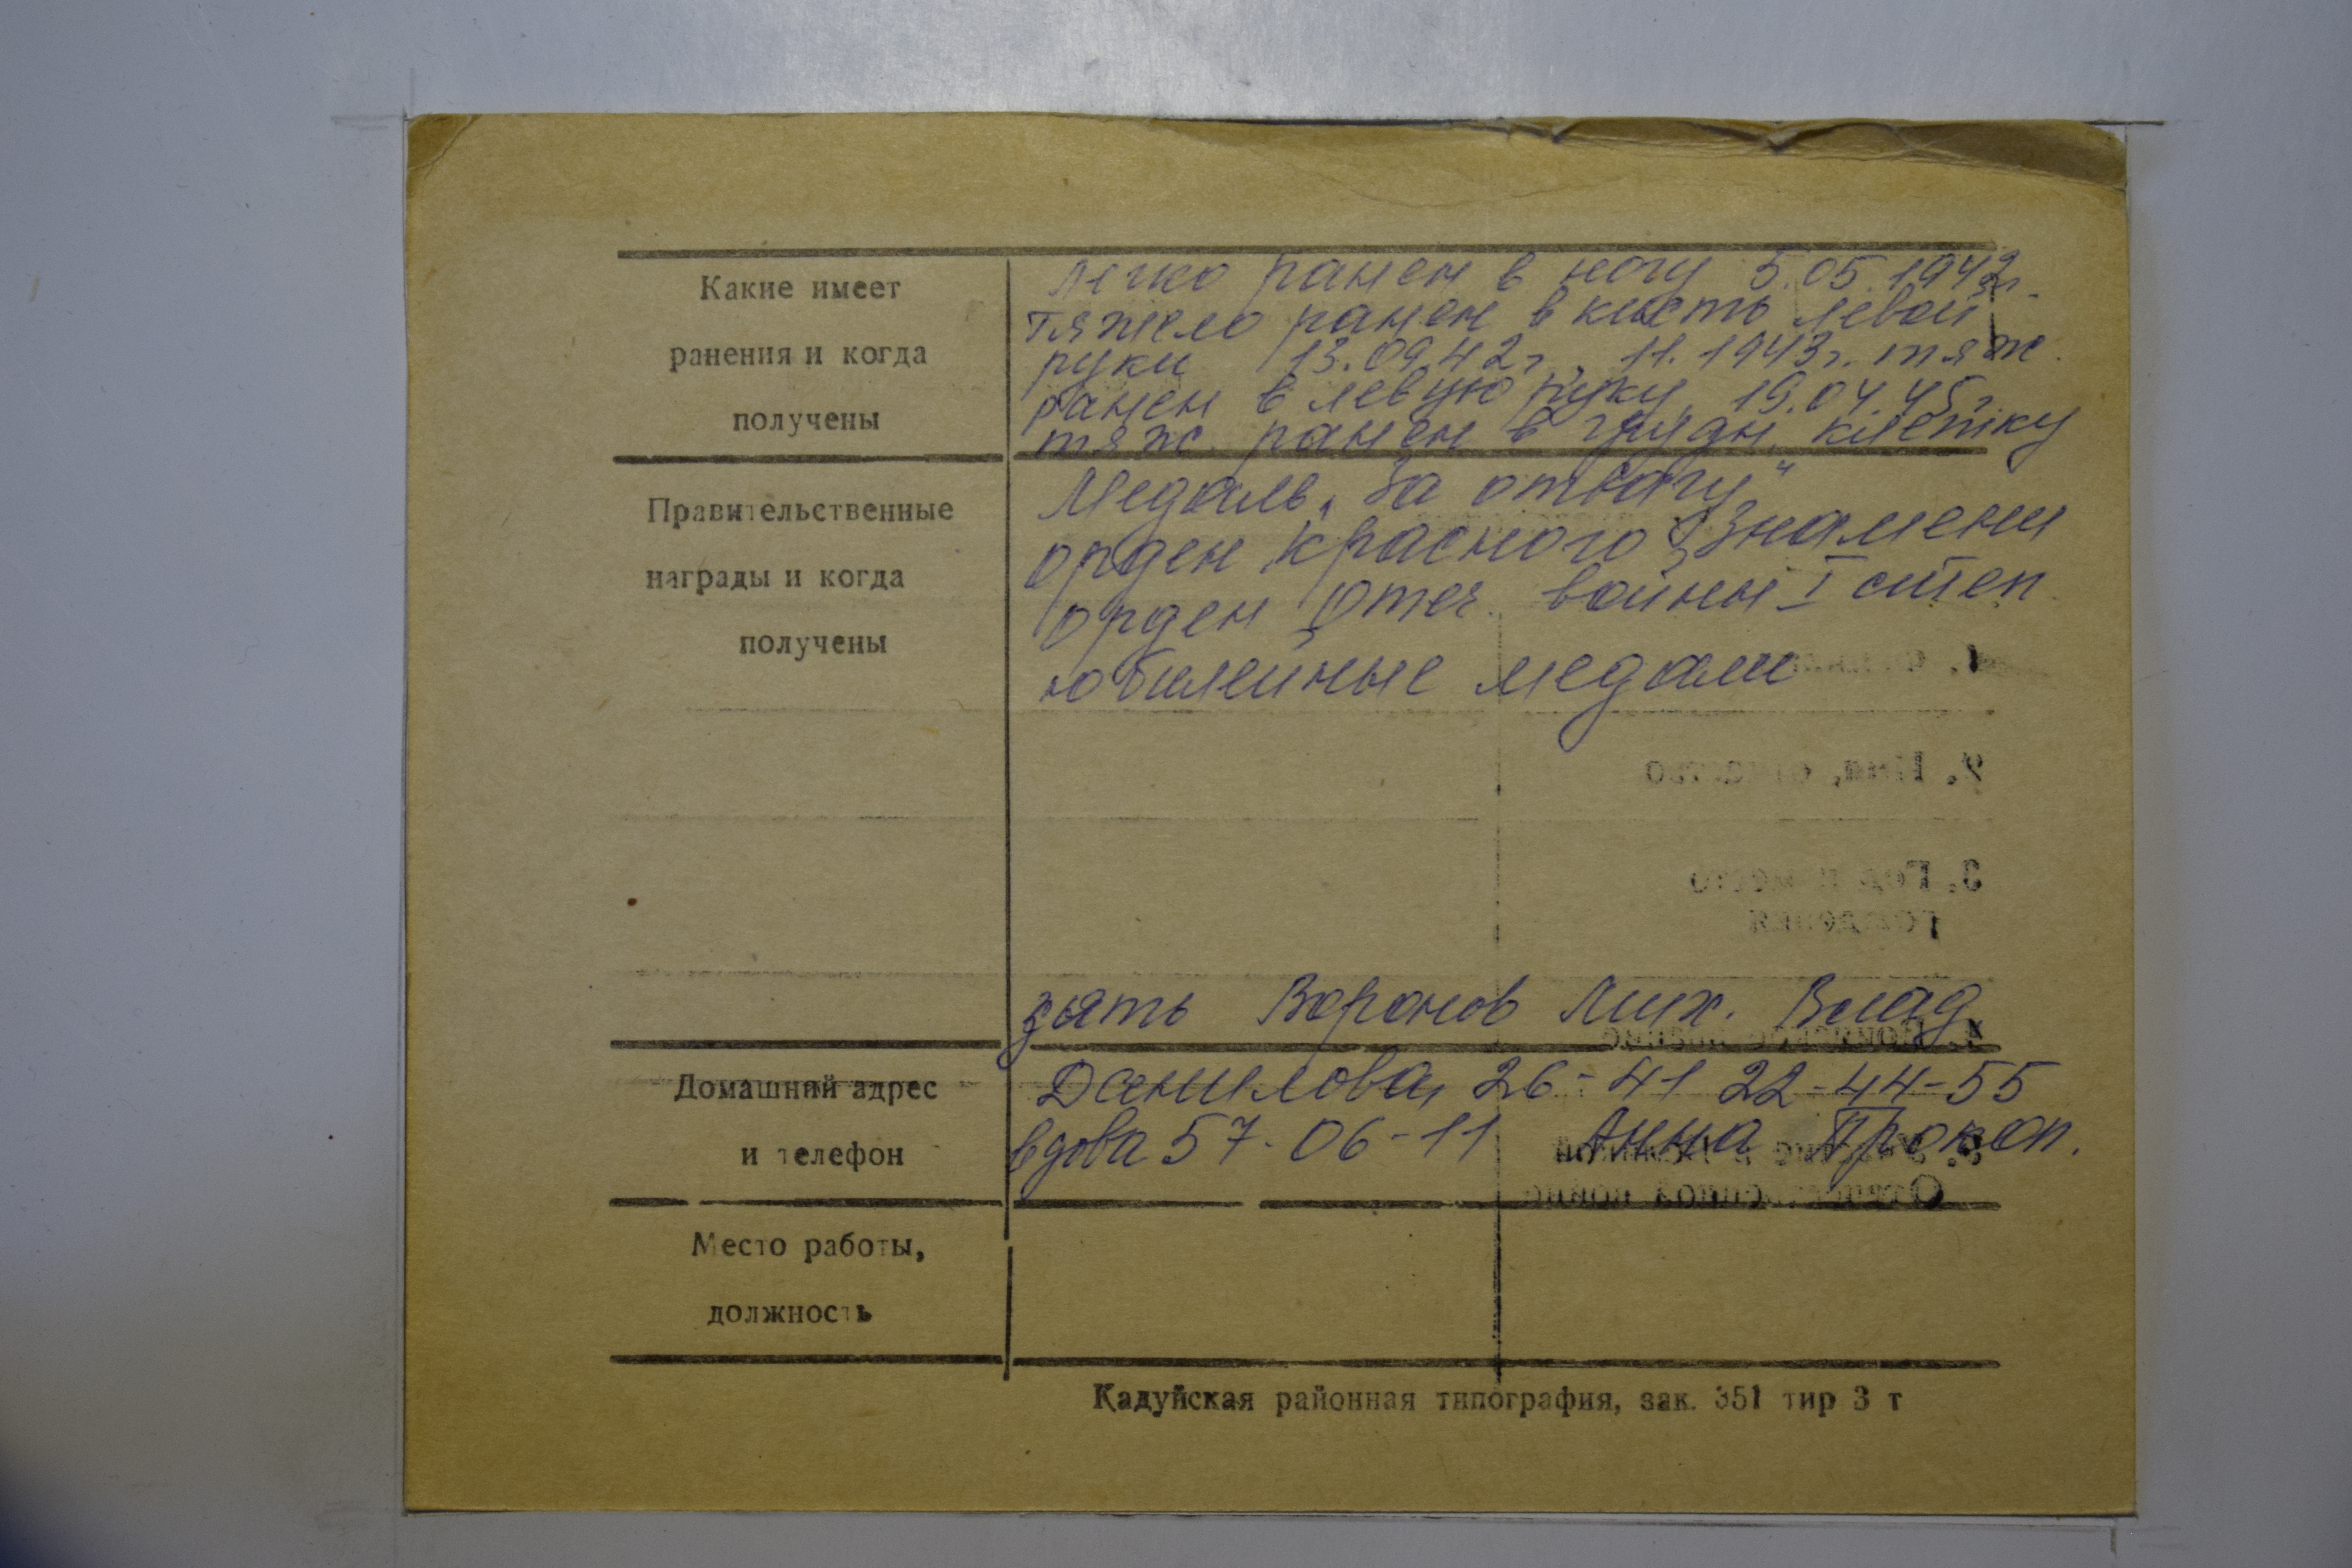 Какие имеет
ранения и когда
получены
Легко ранен в ногу 5.05.1942г.
тяжело ранен в кисть левой
руки 13.09.42г., 11.1943г. тяж.
ранен в левую руку, 19.04.45г.
тяж. ранен в грудн. клетку
Правительственные
награды и когда
получены
Медаль „За отвагу"
орден Красного Знамени
орден Отеч. войны I степ
юбилейные медали
зять Воронов Мих. Влад.
Домашний адрес
и телефон
Данилова, 26-41 22-44-55
вдова 57-06-11 Анна Прокоп.
Место работы,
должность
Кадуйская районная типография, зак. 351 тир 3 т